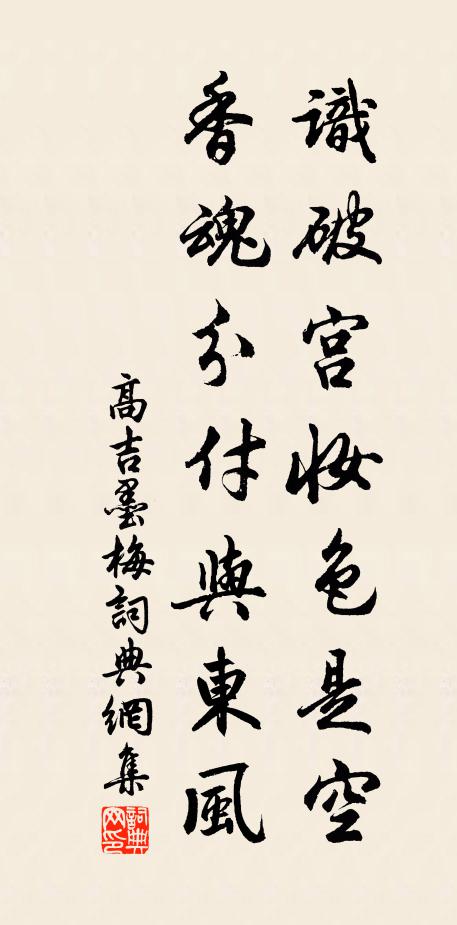 識破宫妝色是空
香魂分付與東風
高吉墨梅詞典網集
詞典网印